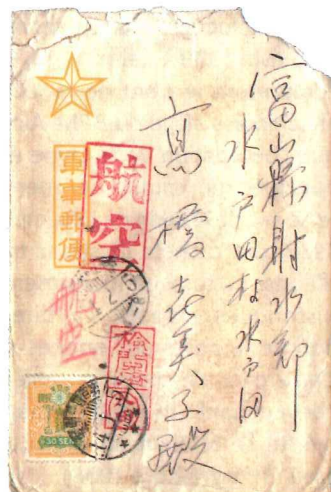 富山縣射水郡
水戸田村水戸田
高櫻喜美子殿
航空
軍事郵便
航空
檢閲濟
30 SEN